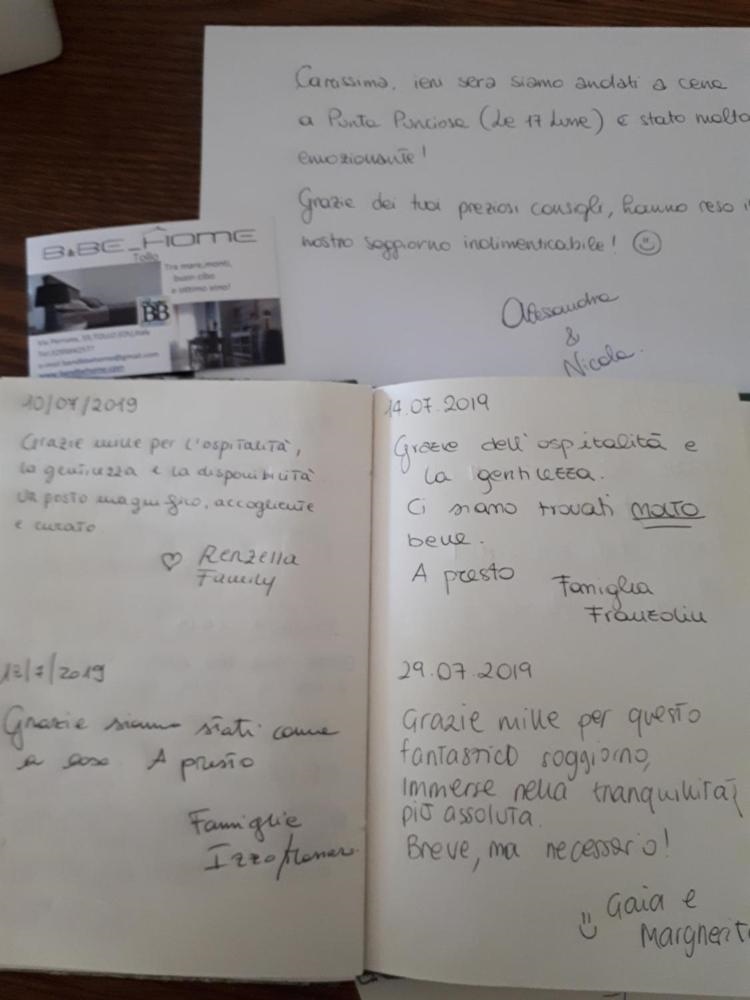 Carissima, ieri sera siamo andati a cena
a Punta Punciosa (Le 17 Lune) è stato molto
emozionante!
Grazie dei tuoi preziosi consigli, hanno reso il
nostro soggiorno indimenticabile! ☺
Alessandra
&
Nicola.
B&BE_HOME
Tollo
Tra mare,monti,
buon cibo
e ottimo vino!
BB
TOLLO (CH), Italy
e-mail:bandbehome@gmail.com
www.bandbehome.com
10/07/2019
Grazie mille per l'ospitalità,
la gentilezza e la disponibilità
Un posto magnifico, accogliente
e curato
♡ Renzella
Family
12/7/2019
Grazie siamo stati come
a casa A presto
Famiglie
Izzo
14.07.2019
Grazie dell'ospitalità e
la gentilezza.
Ci siamo trovati molto
bene.
A presto
Famiglia
Franzolin
29.07.2019
Grazie mille per questo
fantastico soggiorno,
Immerse nella tranquillità
più assoluta.
Breve, ma necessario!
Gaia e
Margherita